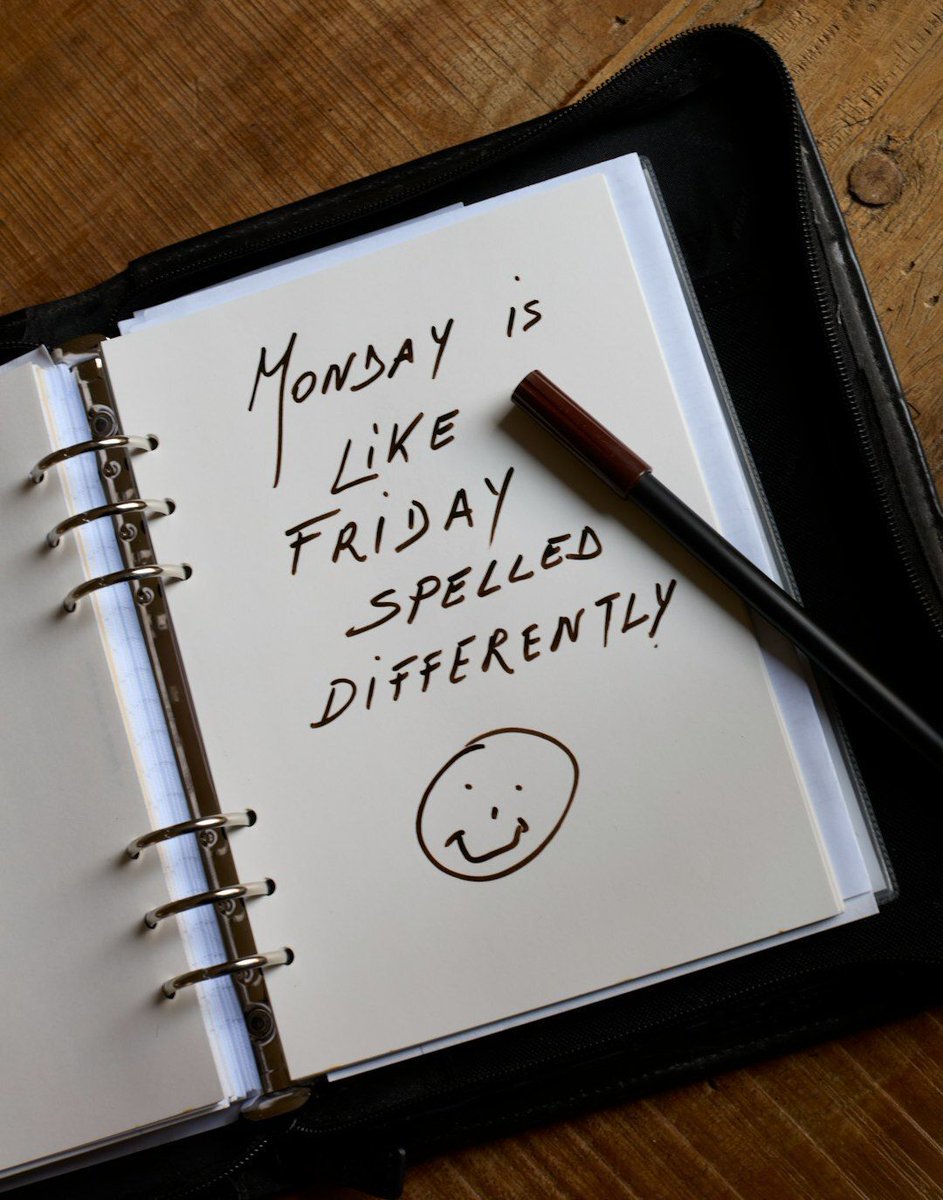 MONDAY iS
LiKE
FRiDAY
SPELLED
DiFFERENTLY